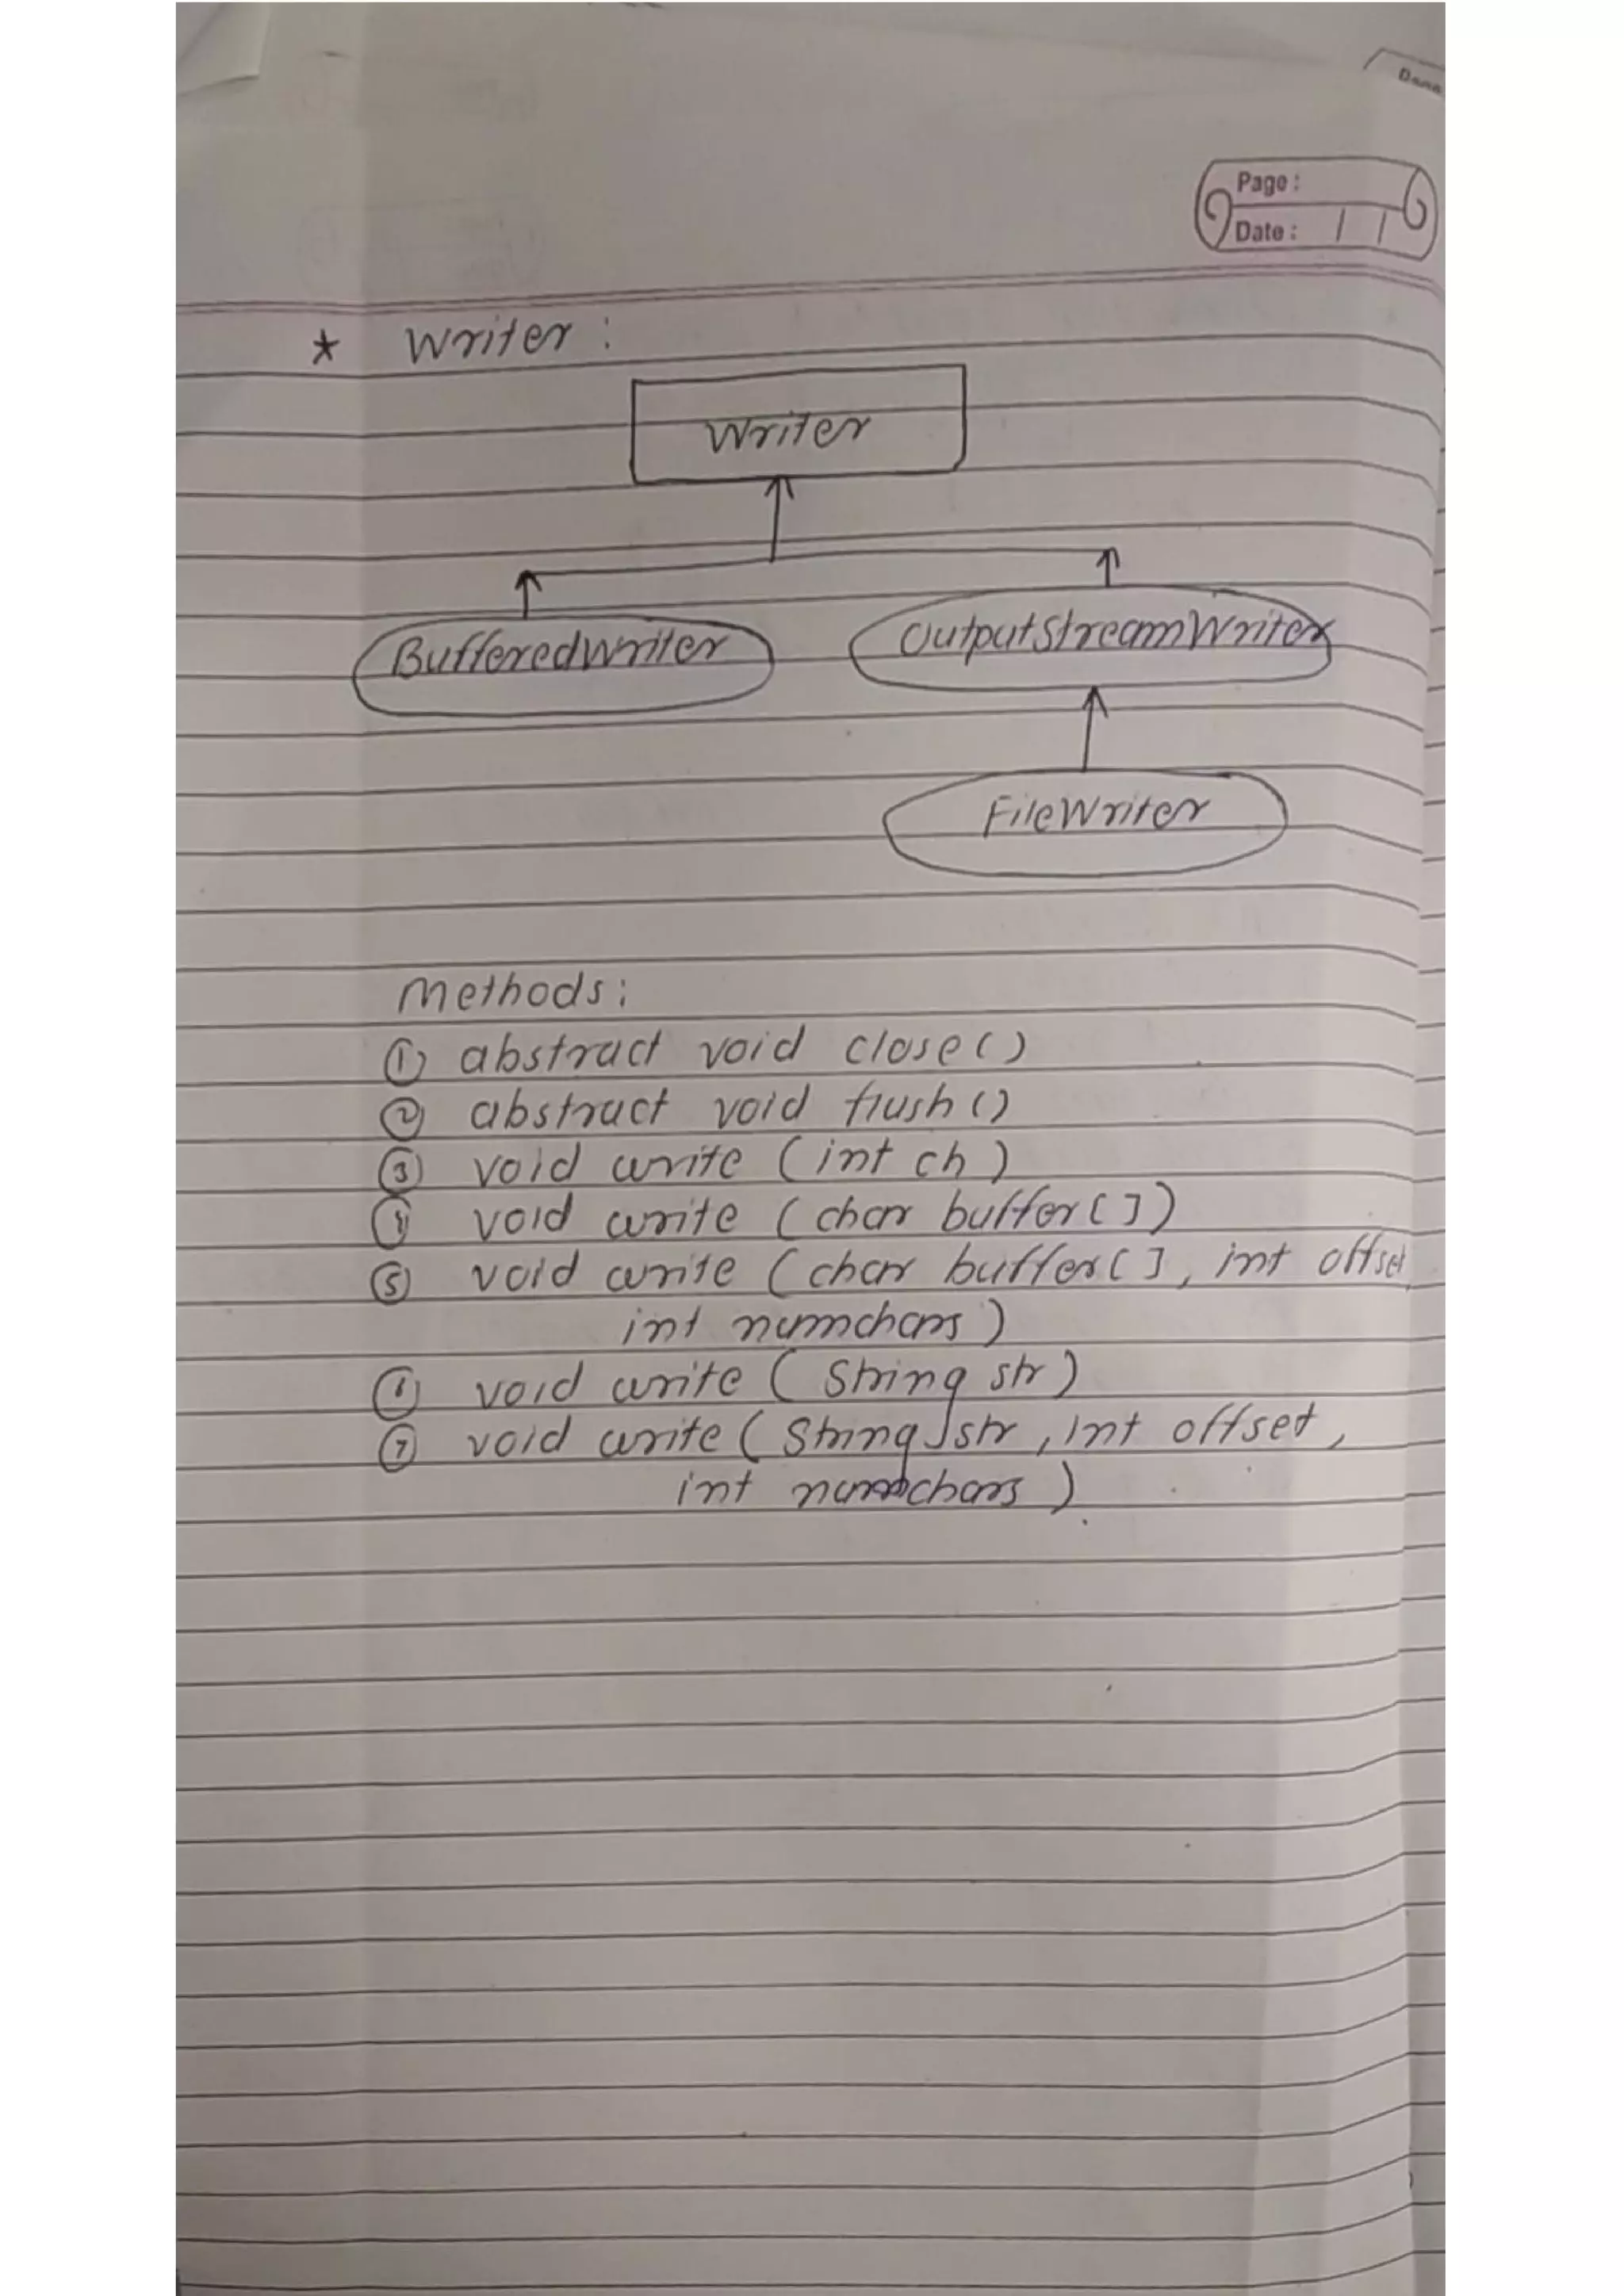 Page :
Date : / /
* Writer :
Writer
BufferedWriter OutputStreamWriter
FileWriter
Methods :
① abstract void close ( )
② abstract void flush ( )
③ void write ( int ch )
④ void write ( char buffer [ ] )
⑤ void write ( char buffer [ ] , int offset
int numchars )
⑥ void write ( String str )
⑦ void write ( String str , int offset ,
int numchars )